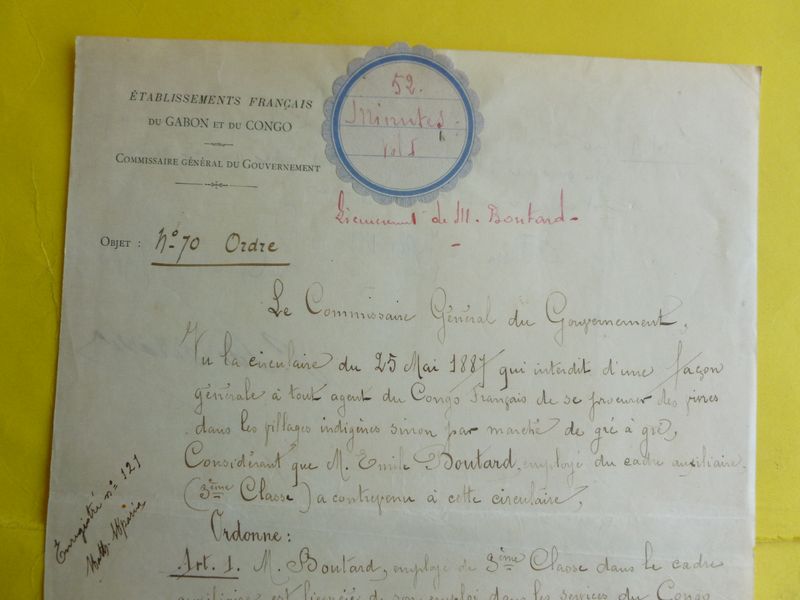 ÉTABLISSEMENTS FRANÇAIS
DU GABON ET DU CONGO
COMMISSAIRE GÉNÉRAL DU GOUVERNEMENT
52.
Minutes
vol 5
Licenciement de M. Boutard
OBJET : N° 70 Ordre
Le Commissaire Général du Gouvernement,
Vu la circulaire du 25 Mai 1887 qui interdit d'une façon
générale à tout agent du Congo Français de se procurer des vivres
dans les villages indigènes sinon par marché de gré à gré,
Considérant que M. Emile Boutard, employé du cadre auxiliaire
(3ème Classe) a contrevenu à cette circulaire,
Ordonne :
Art. 1. M. Boutard, employé de 3ème Classe dans le cadre
auxiliaire est licencié de son emploi dans les services du Congo
Enregistré n° 121